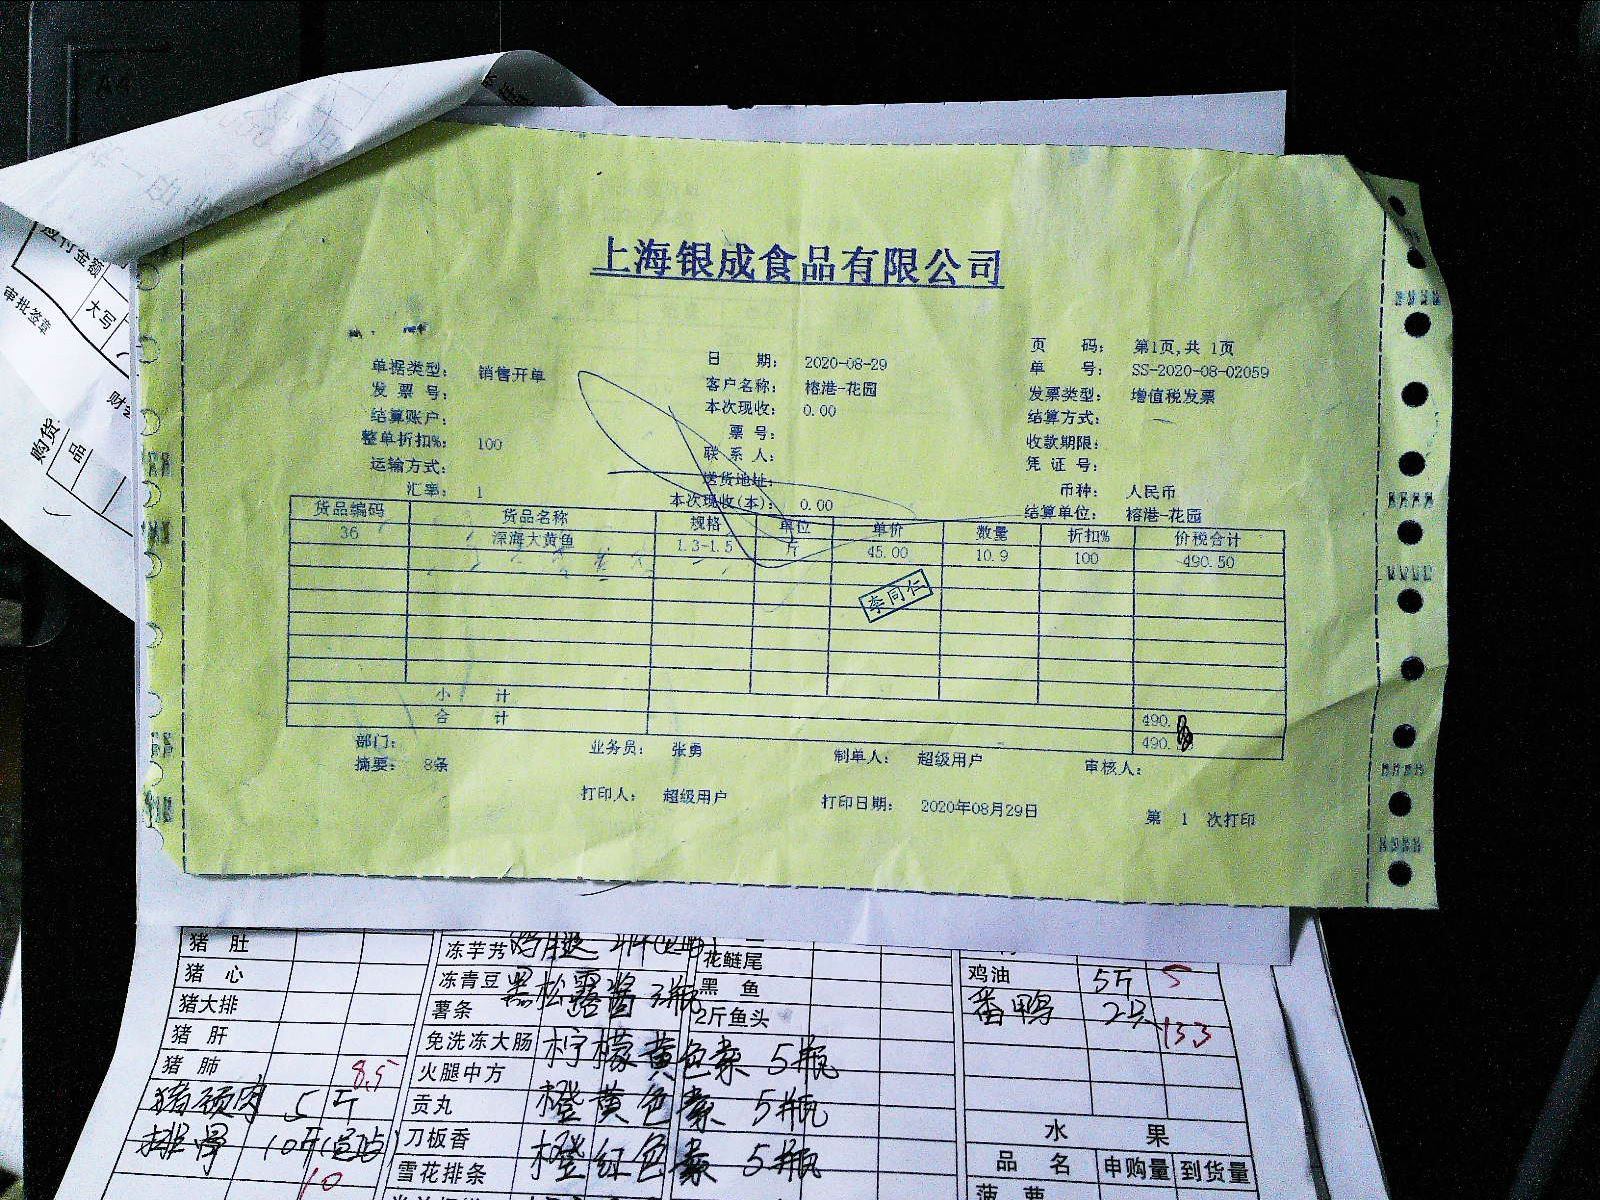 A4
应付金额
大写
审批签章
财务
购货
品
上海银成食品有限公司
单据类型: 销售开单
日 期: 2020-08-29
页 码: 第1页,共 1页
发 票 号:
客户名称: 榕港-花园
单 号: SS-2020-08-02059
结算账户:
本次现收: 0.00
发票类型: 增值税发票
整单折扣%: 100
票 号:
结算方式:
运输方式:
联 系 人:
收款期限:
送货地址:
凭 证 号:
汇率: 1
本次现收(本): 0.00
币种: 人民币
结算单位: 榕港-花园
货品编码 货品名称 规格 单位 单价 数量 折扣% 价税合计
36 深海大黄鱼 1.3-1.5 斤 45.00 10.9 100 490.50
李同仁
小 计 490.
合 计 490.
部门: 业务员: 张勇 制单人: 超级用户 审核人:
摘要: 8条
打印人: 超级用户 打印日期: 2020年08月29日 第 1 次打印
猪 肚 冻芋艿 花鲢尾
猪 心 冻青豆 黑松露酱 3瓶 黑 鱼 鸡油 5斤 5
猪大排 薯条 2斤鱼头 番鸭 2只 13.3
猪 肝 免洗冻大肠 柠檬黄色素 5瓶
猪 肺 8.5 火腿中方
猪颈肉 5斤 贡丸 橙黄色素 5瓶
排骨 10斤 刀板香 橙红色素 5瓶 水 果
10 雪花排条 品 名 申购量 到货量
菠 萝